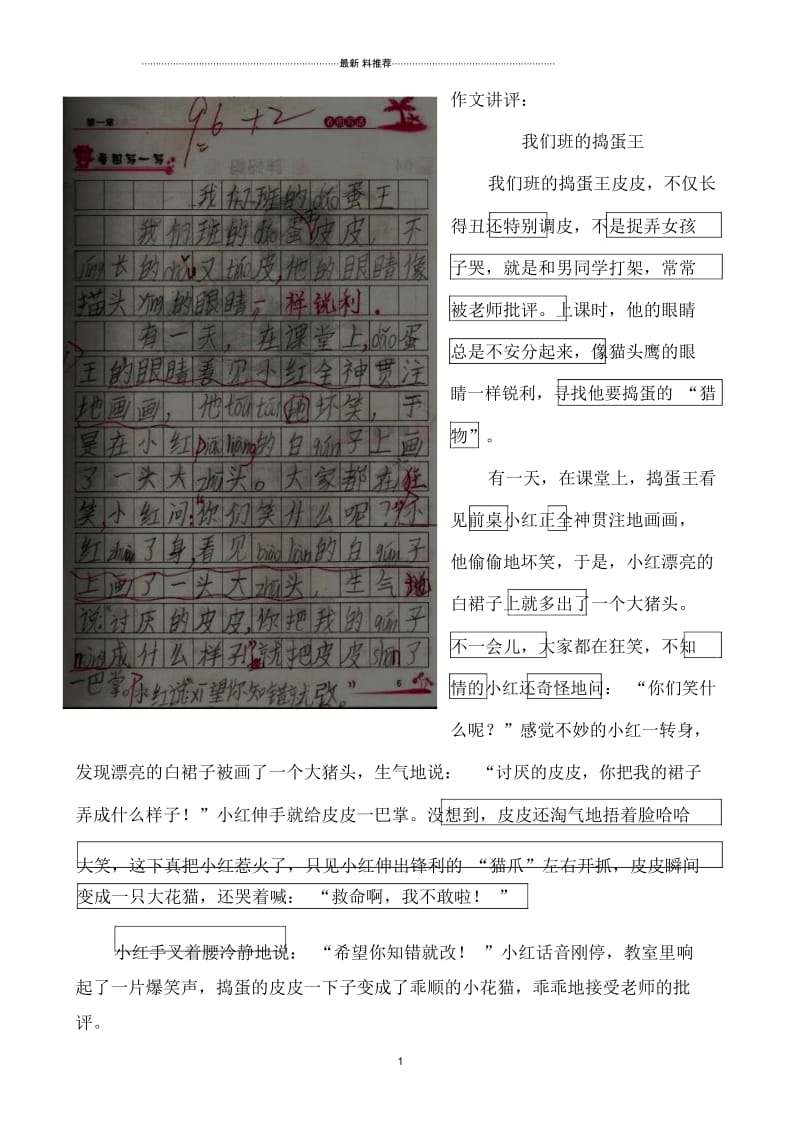 最新 料推荐
第一章
看图写话
96+2
写一写图意
我们班的dǎo蛋王
我们班的dǎo蛋皮皮，不
jǐng长的chǒu又tiáo皮，他的眼睛像
猫头yīng的眼睛一样锐利。
有一天，在课堂上，dǎo蛋
王的眼睛看见小红全神贯注
地画画，他tōutōu地坏笑，于
是在小红piàoliàng的白qún子上画
了一头大zhū头。大家都在狂
笑，小红问：“你们笑什么呢？”小
红zhuǎn了身，看见piàoliàn的白qún子
上画了一头大zhū头，生气地
说：讨厌的皮皮，你把我的qún子
nòng成什么样子！”就把皮皮shān了
一巴掌。小红说：“希望你知错就改。”
6
作文讲评：
我们班的捣蛋王
我们班的捣蛋王皮皮，不仅长
得丑还特别调皮，不是捉弄女孩
子哭，就是和男同学打架，常常
被老师批评。上课时，他的眼睛
总是不安分起来，像猫头鹰的眼
睛一样锐利，寻找他要捣蛋的 “猎
物”。
有一天，在课堂上，捣蛋王看
见前桌小红正全神贯注地画画，
他偷偷地坏笑，于是，小红漂亮的
白裙子上就多出了一个大猪头。
不一会儿，大家都在狂笑，不知
情的小红还奇怪地问： “你们笑什
么呢？”感觉不妙的小红一转身，
发现漂亮的白裙子被画了一个大猪头，生气地说： “讨厌的皮皮，你把我的裙子
弄成什么样子！”小红伸手就给皮皮一巴掌。没想到，皮皮还淘气地捂着脸哈哈
大笑，这下真把小红惹火了，只见小红伸出锋利的 “猫爪”左右开抓，皮皮瞬间
变成一只大花猫，还哭着喊： “救命啊，我不敢啦！ ”
小红手叉着腰冷静地说： “希望你知错就改！ ”小红话音刚停，教室里响
起了一片爆笑声，捣蛋的皮皮一下子变成了乖顺的小花猫，乖乖地接受老师的批
评。
1